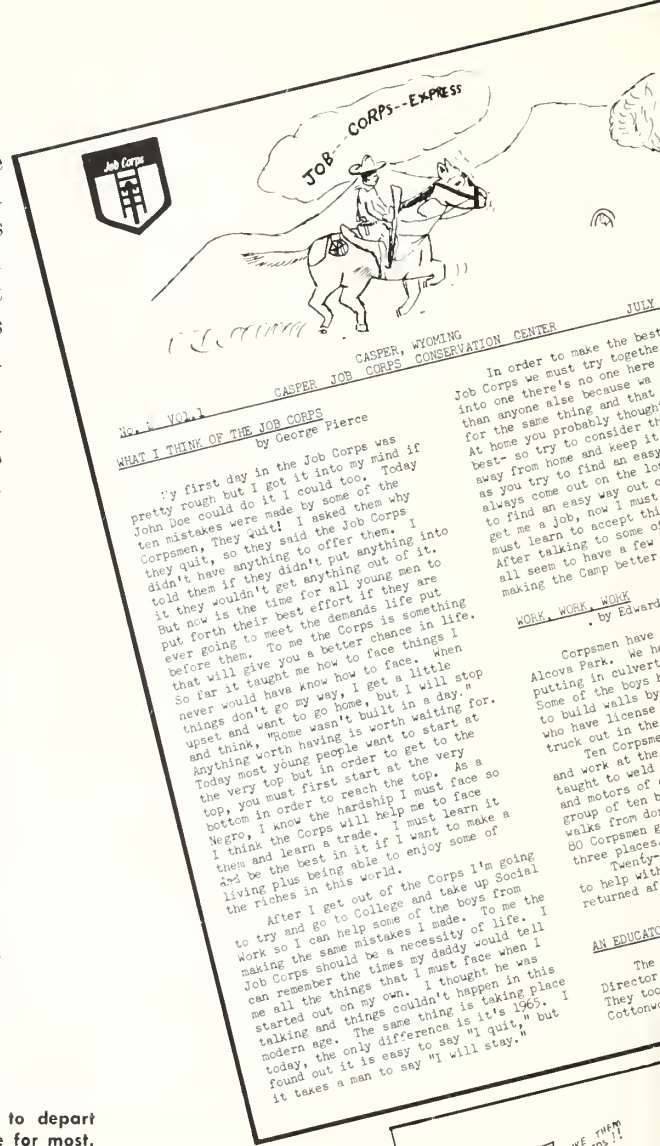 Job Corps
JOB--CORPS--EXPRESS
CASPER, WYOMING
CASPER JOB CORPS CONSERVATION CENTER JULY
No. VOL.1
WHAT I THINK OF THE JOB CORPS
by George Pierce
My first day in the Job Corps was
pretty rough but I got it into my mind if
John Doe could do it I could too. Today
ten mistakes were made by some of the
Corpsmen, They Quit! I asked them why
they quit, so they said the Job Corps
didn't have anything to offer them. I
told them if they didn't put anything into
it they wouldn't get anything out of it.
But now is the time for all young men to
put forth their best effort if they are
ever going to meet the demands life put
before them. To me the Corps is something
that will give you a better chance in life.
So far it taught me how to face things I
never would hava know how to face. When
things don't go my way, I get a little
upset and want to go home, but I will stop
and think, "Rome wasn't built in a day."
Anything worth having is worth waiting for.
Today most young people want to start at
the very top but in order to get to the
top, you must first start at the very
bottom in order to reach the top. As a
Negro, I know the hardship I must face so
I think the Corps will help me to face
them and learn a trade. I must learn it
and be the best in it if I want to make a
living plus being able to enjoy some of
the riches in this world.
After I get out of the Corps I'm going
to try and go to College and take up Social
Work so I can help some of the boys from
making the same mistakes I made. To me the
Job Corps should be a necessity of life. I
can remember the times my daddy would tell
me all the things that I must face when I
started out on my own. I thought he was
talking and things couldn't happen in this
modern age. The same thing is taking place
today, the only difference is it's 1965. I
found out it is easy to say "I quit," but
it takes a man to say "I will stay."
In order to make the best
Job Corps we must try togethe
into one there's no one here
than anyone alse because wa
for the same thing and that
At home you probably though
best- so try to consider th
away from home and keep it
as you try to find an easy
always come out on the lo
to find an easy way out o
get me a job, now I must
must learn to accept thi
After talking to some of
all seem to have a few
making the Camp better
WORK, WORK, WORK
by Edward
Corpsmen have
Alcova Park. We he
putting in culvert
Some of the boys h
to build walls by
who have license
truck out in the
Ten Corpsme
and work at the
taught to weld
and motors of
group of ten b
walks from dor
80 Corpsmen g
three places.
Twenty-
to help with
returned af
AN EDUCATO
The
Director
They too
Cottonwo
to depart
e for most.
KE THEM